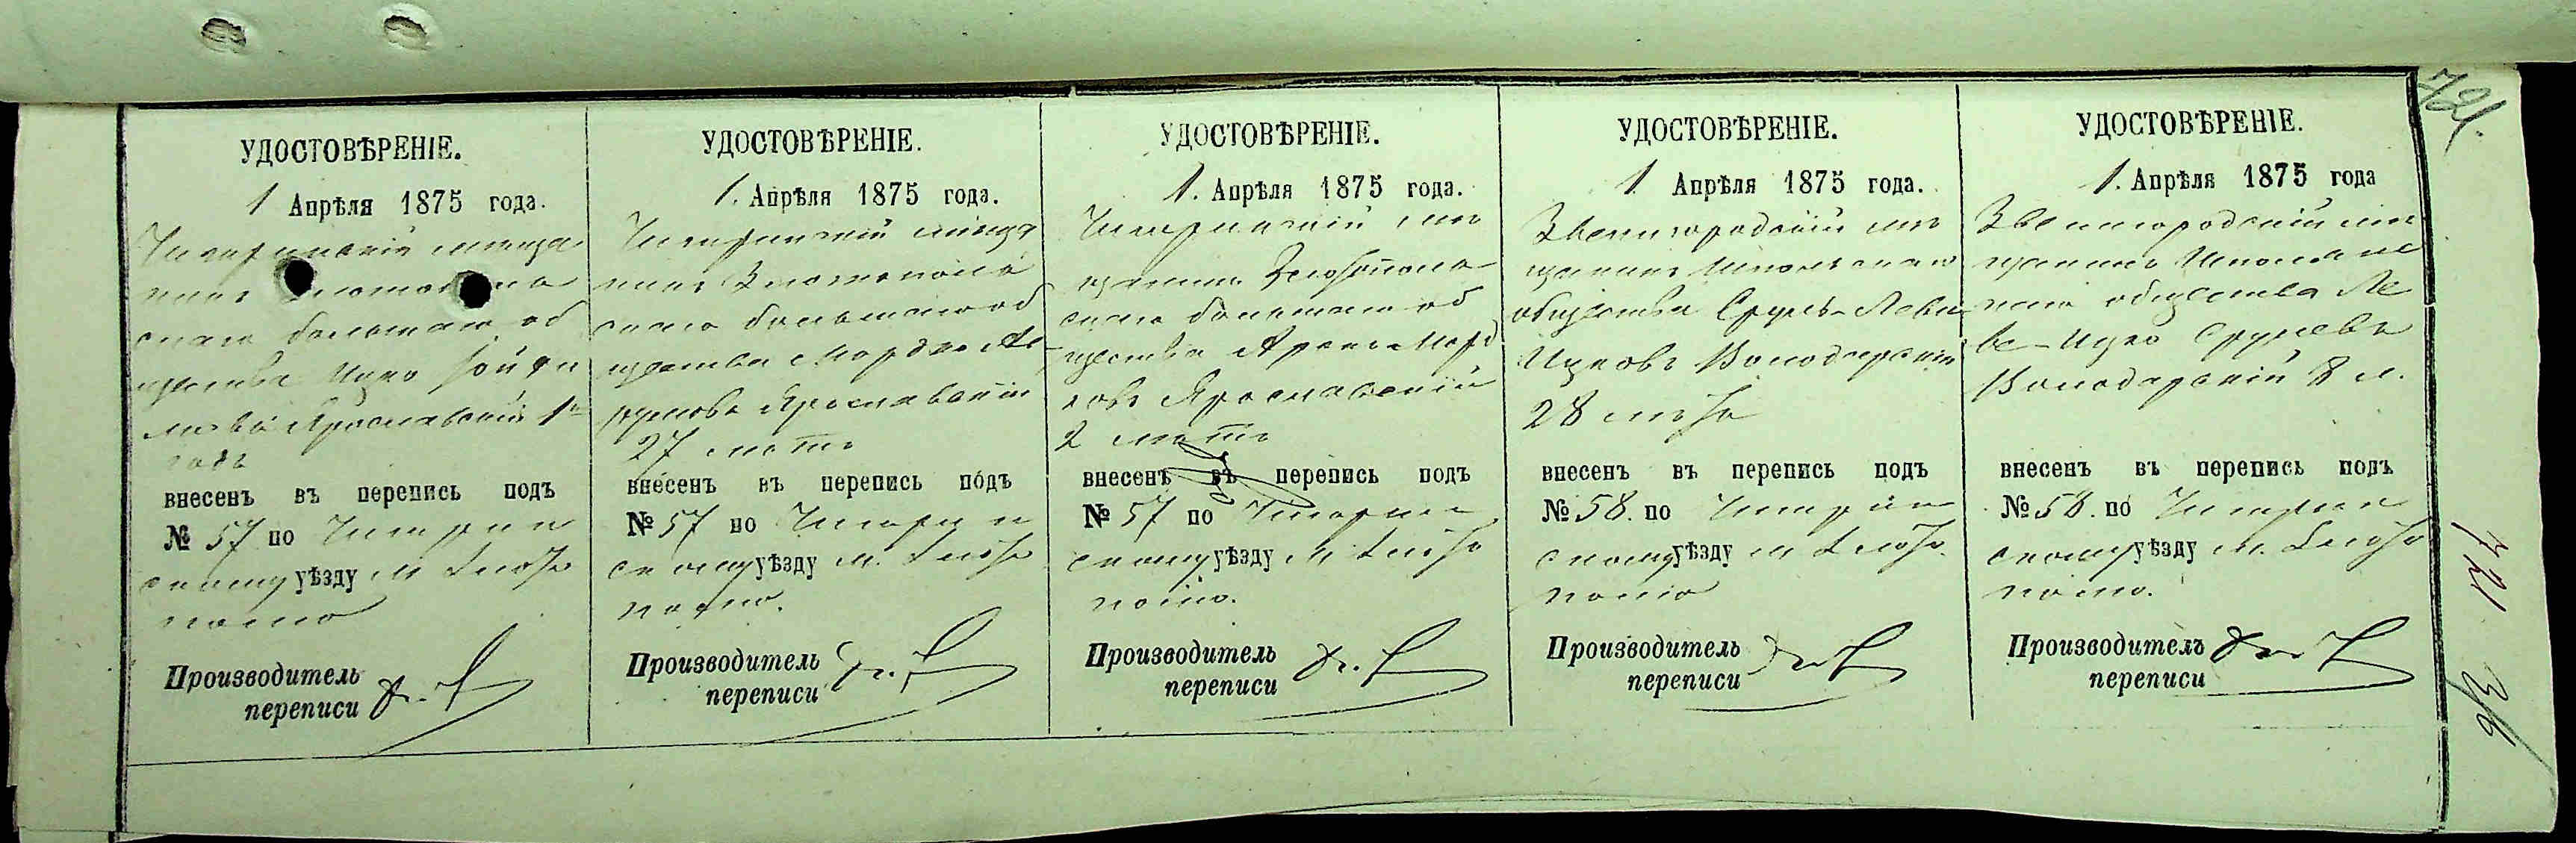 УДОСТОВѢРЕНІЕ.
1 Апрѣля 1875 года.
Чигиринскій мѣща
нинъ
скаго большаго об
щества Ицко
Ярославскій 1
годъ
внесенъ въ перепись подъ
№ 57 по Чигирин
скому уѣзду м. Злато
полю
Производитель
переписи
УДОСТОВѢРЕНІЕ.
1. Апрѣля 1875 года.
Чигиринскій мѣща
нинъ Златополь
скаго большаго об
щества Мордко
Ярославскій
27 лѣтъ
внесенъ въ перепись подъ
№ 57 по Чигирин
скому уѣзду м. Злато
полю.
Производитель
переписи
УДОСТОВѢРЕНІЕ.
1. Апрѣля 1875 года.
Чигиринскій мѣ
щанинъ Златополь
скаго большаго об
щества Аронъ Морд
ковъ Ярославскій
2 лѣтъ
внесенъ въ перепись подъ
№ 57 по Чигирин
скому уѣзду м. Злато
полю.
Производитель
переписи
УДОСТОВѢРЕНІЕ.
1 Апрѣля 1875 года.
Звенигородскій мѣ
щанинъ Шполянскаго
общества Сруль-Лейба
Ицковъ Володарскій
28 лѣтъ
внесенъ въ перепись подъ
№ 58. по Чигирин
скому уѣзду м. Злато
полю
Производитель
переписи
УДОСТОВѢРЕНІЕ.
1. Апрѣля 1875 года
Звенигородскій мѣ
щанинъ Шполянс
каго общества Ле
Ицко Срулевъ
Володарскій 8 л.
внесенъ въ перепись подъ
№ 58. по Чигирин
скому уѣзду м. Злато
полю.
Производитель
переписи
721.
721